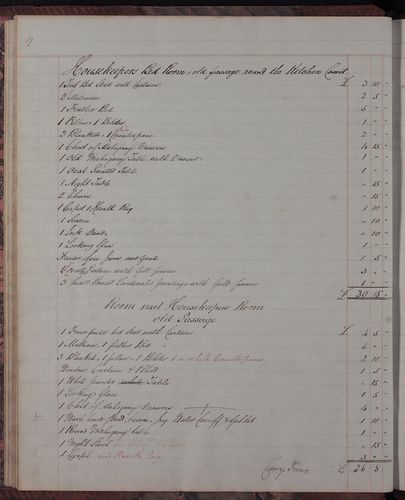 Housekeepers Bed Room, old passage round the Kitchen Court
1 Tent Bed Stead with Curtains £ 3 10 "
2 Mattresses 2 5 "
1 Feather Bed 5 " "
1 Pillow, 1 Bolster 1 " "
3 Blankets, 1 Counterpane 2 " "
1 Chest of Mahogany Drawers 4 15 "
1 Old Mahogany Table with Drawer 1 " "
1 Oval Painted Table
1 Night Table " 15 "
2 Chairs " 15 "
1 Carpet 1 Hearth Rug 1 10 "
1 Screen " 10 "
1 Ink Stand " 10 "
1 Looking Glass 1 " "
Fender fire irons and Grate 1 5 "
Pictures with Gilt frames 3 " "
3 small Landscape paintings with Gilt frames 1 " "
£ 30 15 "
Room next Housekeepers Room
old Passage
1 Four posted bed stead with Curtains £ 4 5 "
1 Mattress, 1 feather Bed 6 " "
3 Blankets, 1 pillow, 1 Bolster 1 white Counterpane 2 10 "
Window Curtains & Blind 1 5 "
1 White painted Table " 15 "
1 Looking Glass 1 5 "
1 Chest of Mahogany Drawers 4 " "
1 Wash hand Stand, bason, jug Water Caroff & Goblet 1 10 "
1 Round Mahogany table 1 " "
1 Night Stool " 15 "
1 Carpet and Hearth rug 3 " "
Carry Forwd £ 26 5